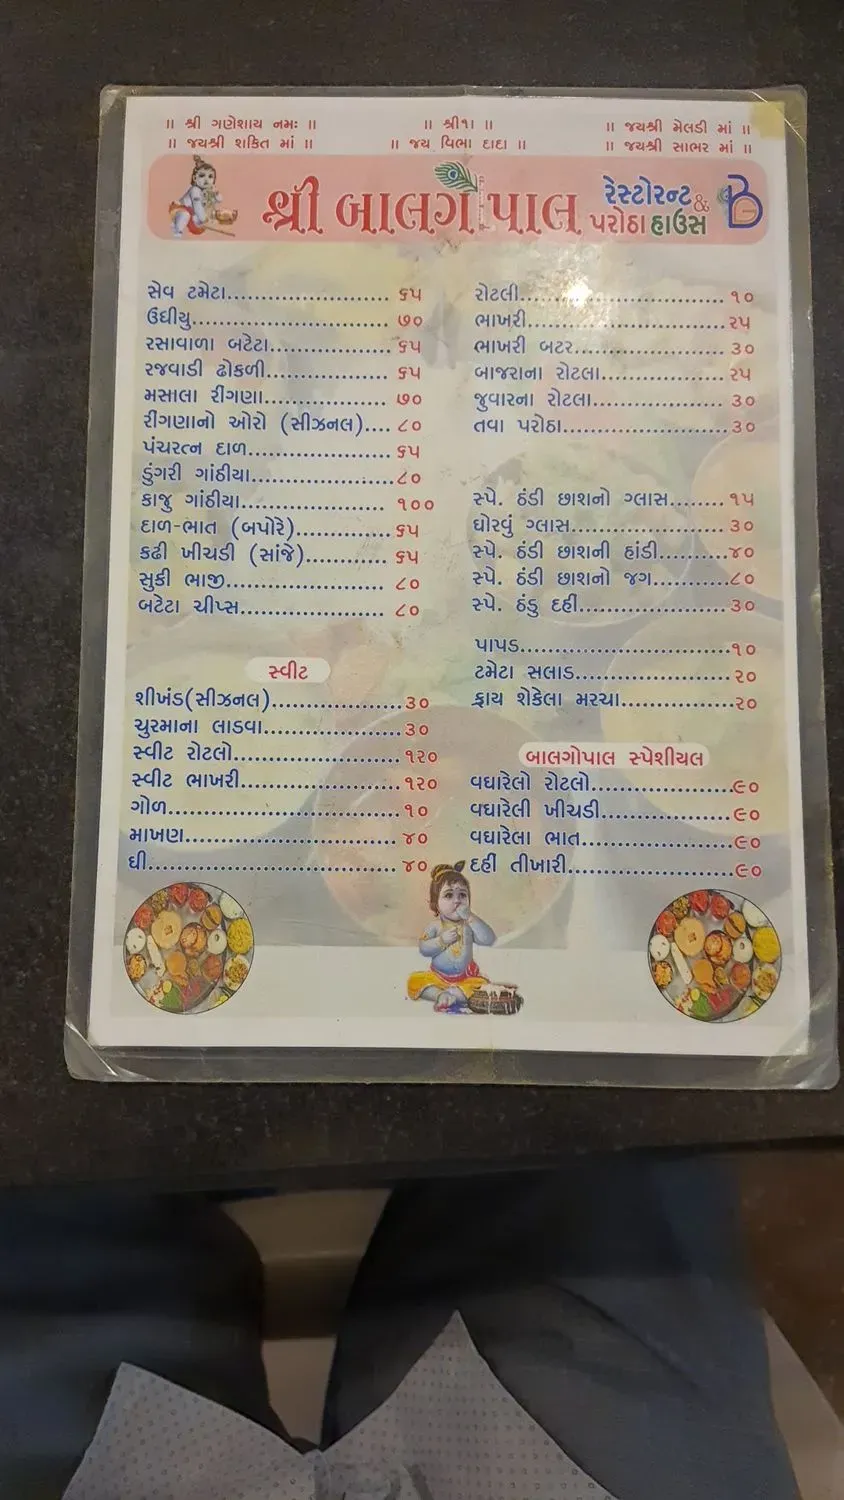 ॥ શ્રી ગણેશાય નમઃ ॥ ॥ શ્રી૧ા ॥ ॥ જયશ્રી મેલડી માં ॥
॥ જયશ્રી શકિત માં ॥ ॥ જય વિભા દાદા ॥ ॥ જયશ્રી સાભર માં ॥
શ્રી બાલગોપાલ રેસ્ટોરન્ટ &
પરોઠા હાઉસ
સેવ ટમેટા........................ ૬૫
ઉંધીયુ............................. ૭૦
રસાવાળા બટેટા.................. ૬૫
રજવાડી ઢોકળી.................. ૬૫
મસાલા રીંગણા.................. ૭૦
રીંગણાનો ઓરો (સીઝનલ).... ૮૦
પંચરત્ન દાળ..................... ૬૫
ડુંગરી ગાંઠીયા.....................૮૦
કાજુ ગાંઠીયા..................... ૧૦૦
દાળ-ભાત (બપોરે)..............૬૫
કઢી ખીચડી (સાંજે)............ ૬૫
સુકી ભાજી....................... ૮૦
બટેટા ચીપ્સ..................... ૮૦
સ્વીટ
શીખંડ(સીઝનલ)...................૩૦
ચુરમાના લાડવા.....................૩૦
સ્વીટ રોટલો.........................૧૨૦
સ્વીટ ભાખરી........................૧૨૦
ગોળ...................................૧૦
માખણ................................૪૦
ઘી.....................................૪૦
રોટલી.............................. ૧૦
ભાખરી.............................૨૫
ભાખરી બટર...................... ૩૦
બાજરાના રોટલા..................૨૫
જુવારના રોટલા................... ૩૦
તવા પરોઠા........................૩૦
સ્પે. ઠંડી છાશનો ગ્લાસ........૧૫
ઘોરવું ગ્લાસ.......................૩૦
સ્પે. ઠંડી છાશની હાંડી..........૪૦
સ્પે. ઠંડી છાશનો જગ...........૮૦
સ્પે. ઠંડુ દહીં......................૩૦
પાપડ...............................૧૦
ટમેટા સલાડ.......................૨૦
ફ્રાય શેકેલા મરચા.................૨૦
બાલગોપાલ સ્પેશીયલ
વઘારેલો રોટલો.....................૯૦
વઘારેલી ખીચડી....................૯૦
વઘારેલા ભાત.......................૯૦
દહીં તીખારી.........................૯૦